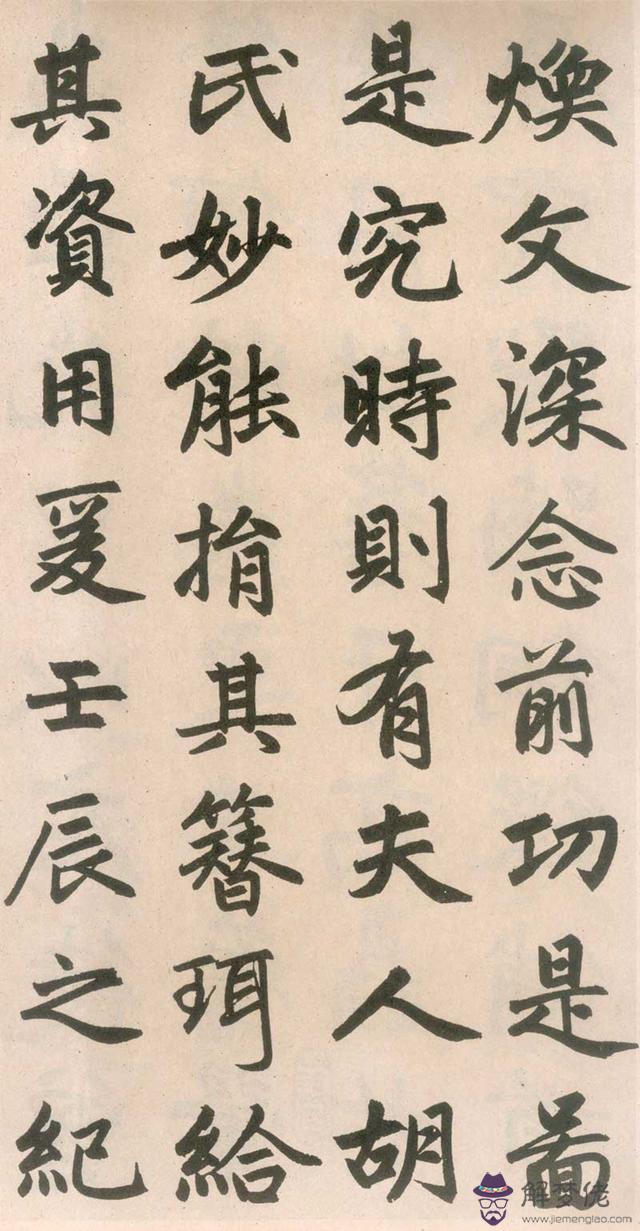 煥文深念前功是啚
是究時則有夫人胡
氏妙能捐其簪珥給
其資用爰壬辰之紀
解梦佬
www.jiemenglao.com